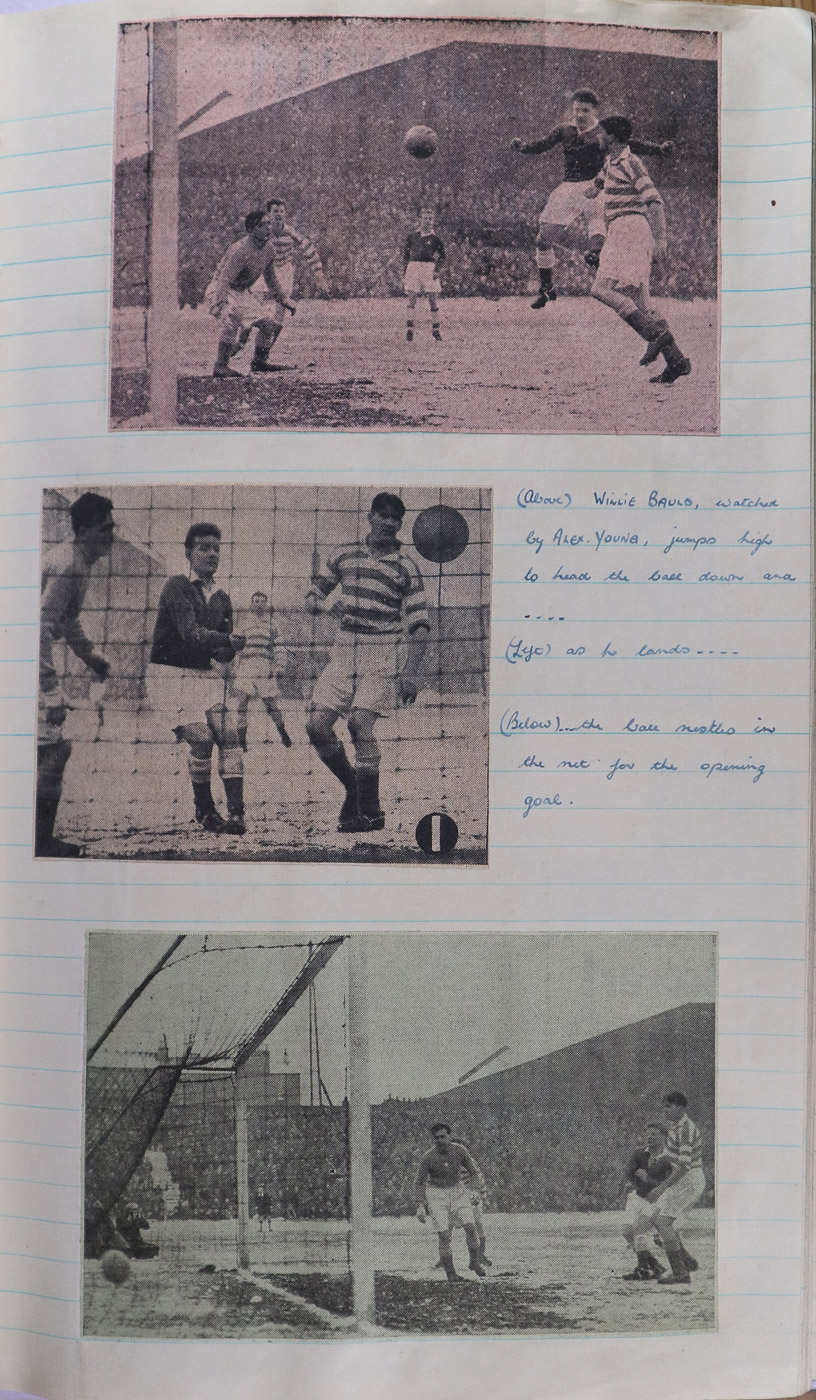 (Above) WILLIE BAULD, watched
by ALEX. YOUNG, jumps high
to head the ball down and
....
(Left) as he lands----
(Below)...the ball nestles in
the net for the opening
goal.
1